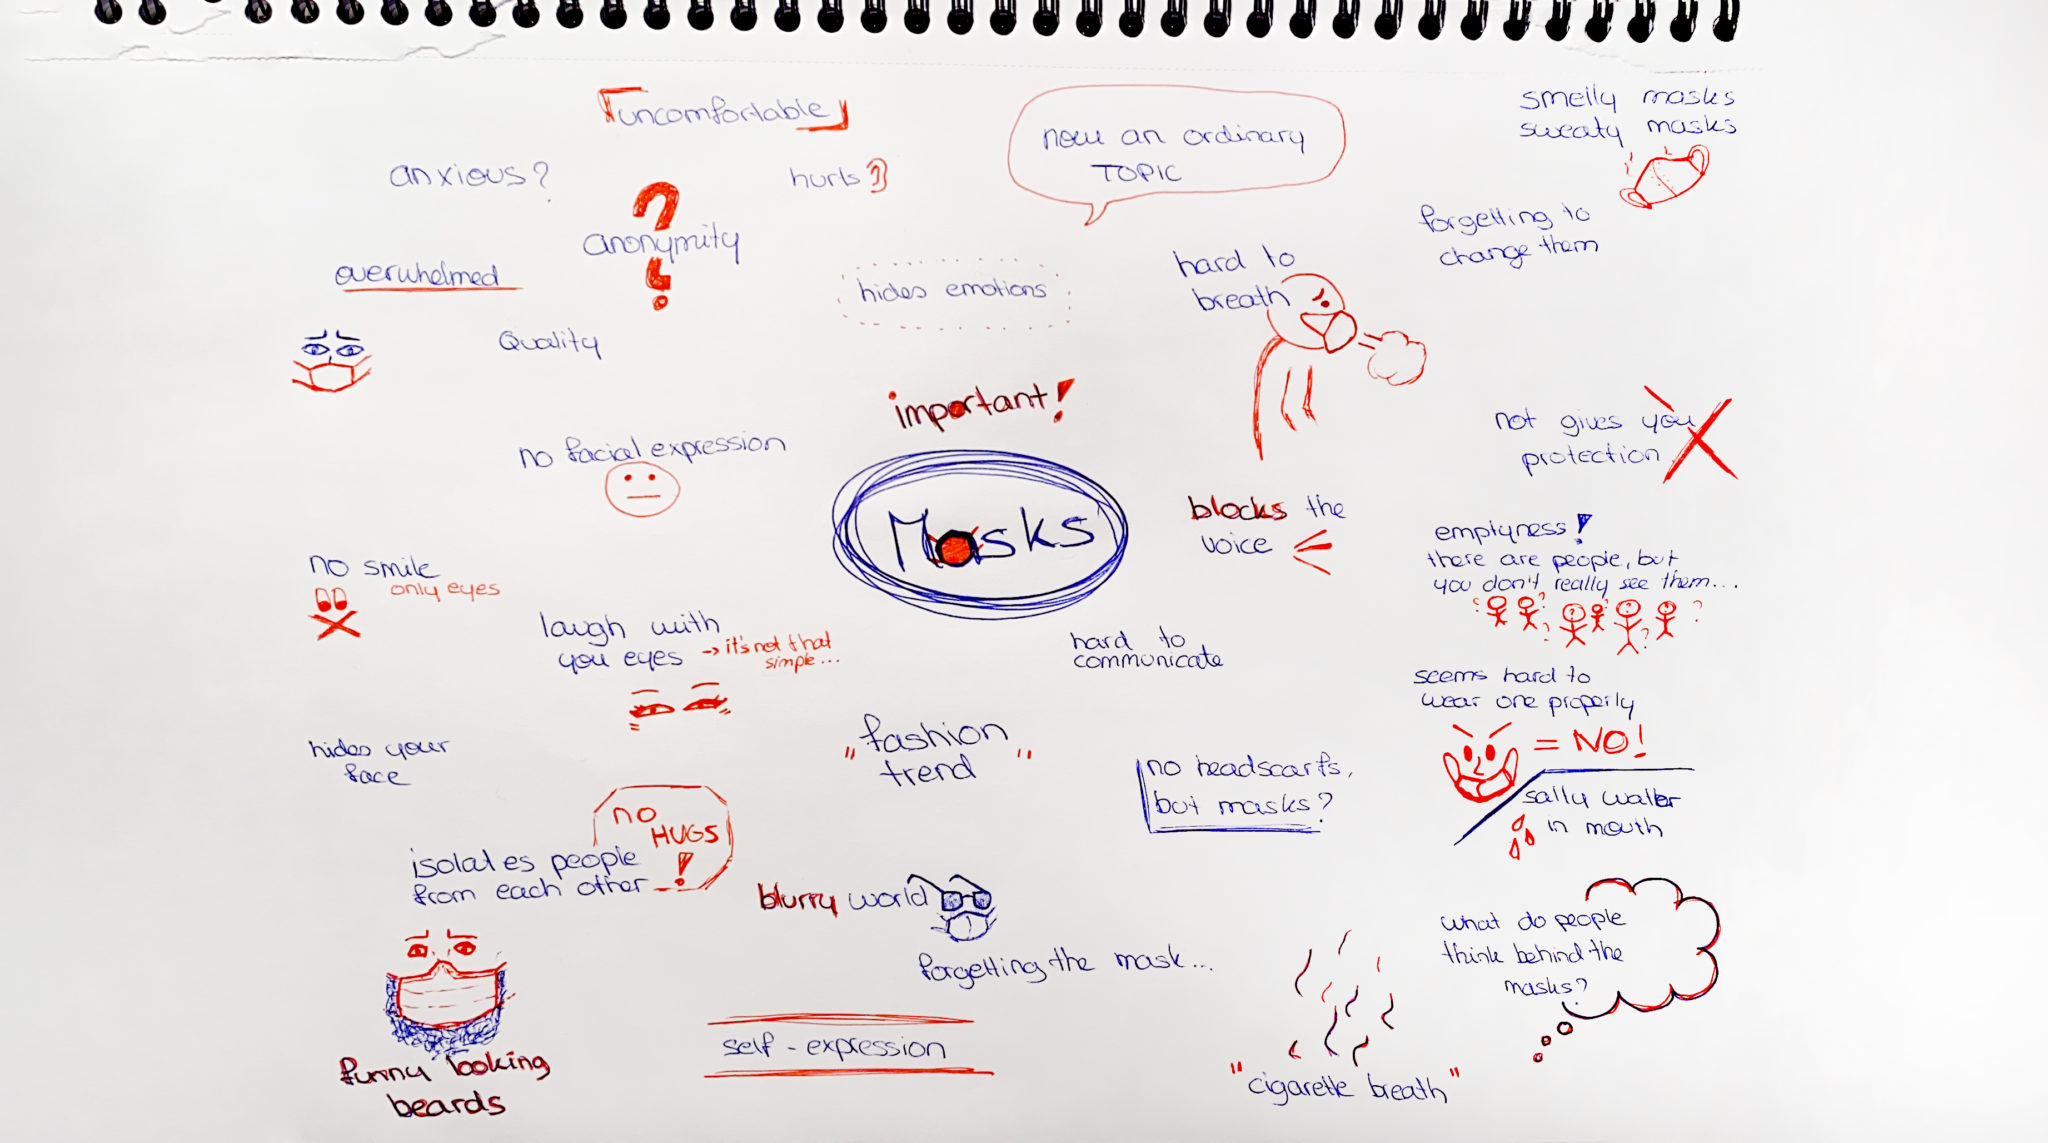 uncomfortable
anxious?
hurts
?
anonymity
overwhelmed
Quality
now an ordinary
TOPIC
smelly masks
sweaty masks
forgetting to
change them
hides emotions
hard to
breath
important!
no facial expression
Masks
not gives you
protection
blocks the
voice
emptyness!
there are people, but
you don't really see them...
no smile
only eyes
laugh with
you eyes → it's not that
simple...
hard to
communicate
seems hard to
wear one properly
= NO!
hides your
face
"fashion
trend"
no headscarfs,
but masks?
in mouth
no
HUGS
!
isolates people
from each other
blurry world
forgetting the mask...
what do people
think behind the
masks?
funny looking
beards
self-expression
"cigarette breath"